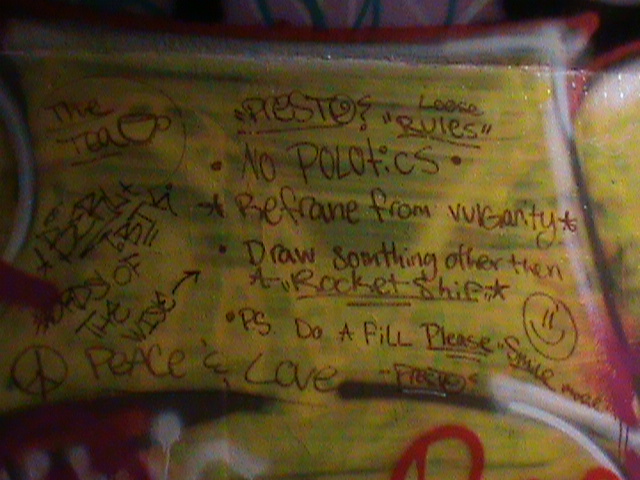 The
Tea
"PRESTO'S
Loose
"RULES"
• NO POLOTiCS •
* Refrane from vulgarity *
• Draw somthing other then
* "Rocket Ship" *
• PS. DO A FiLL Please
Smile more
WORDS OF
THE
WISE
PEACE & LOVE
- PRESTO